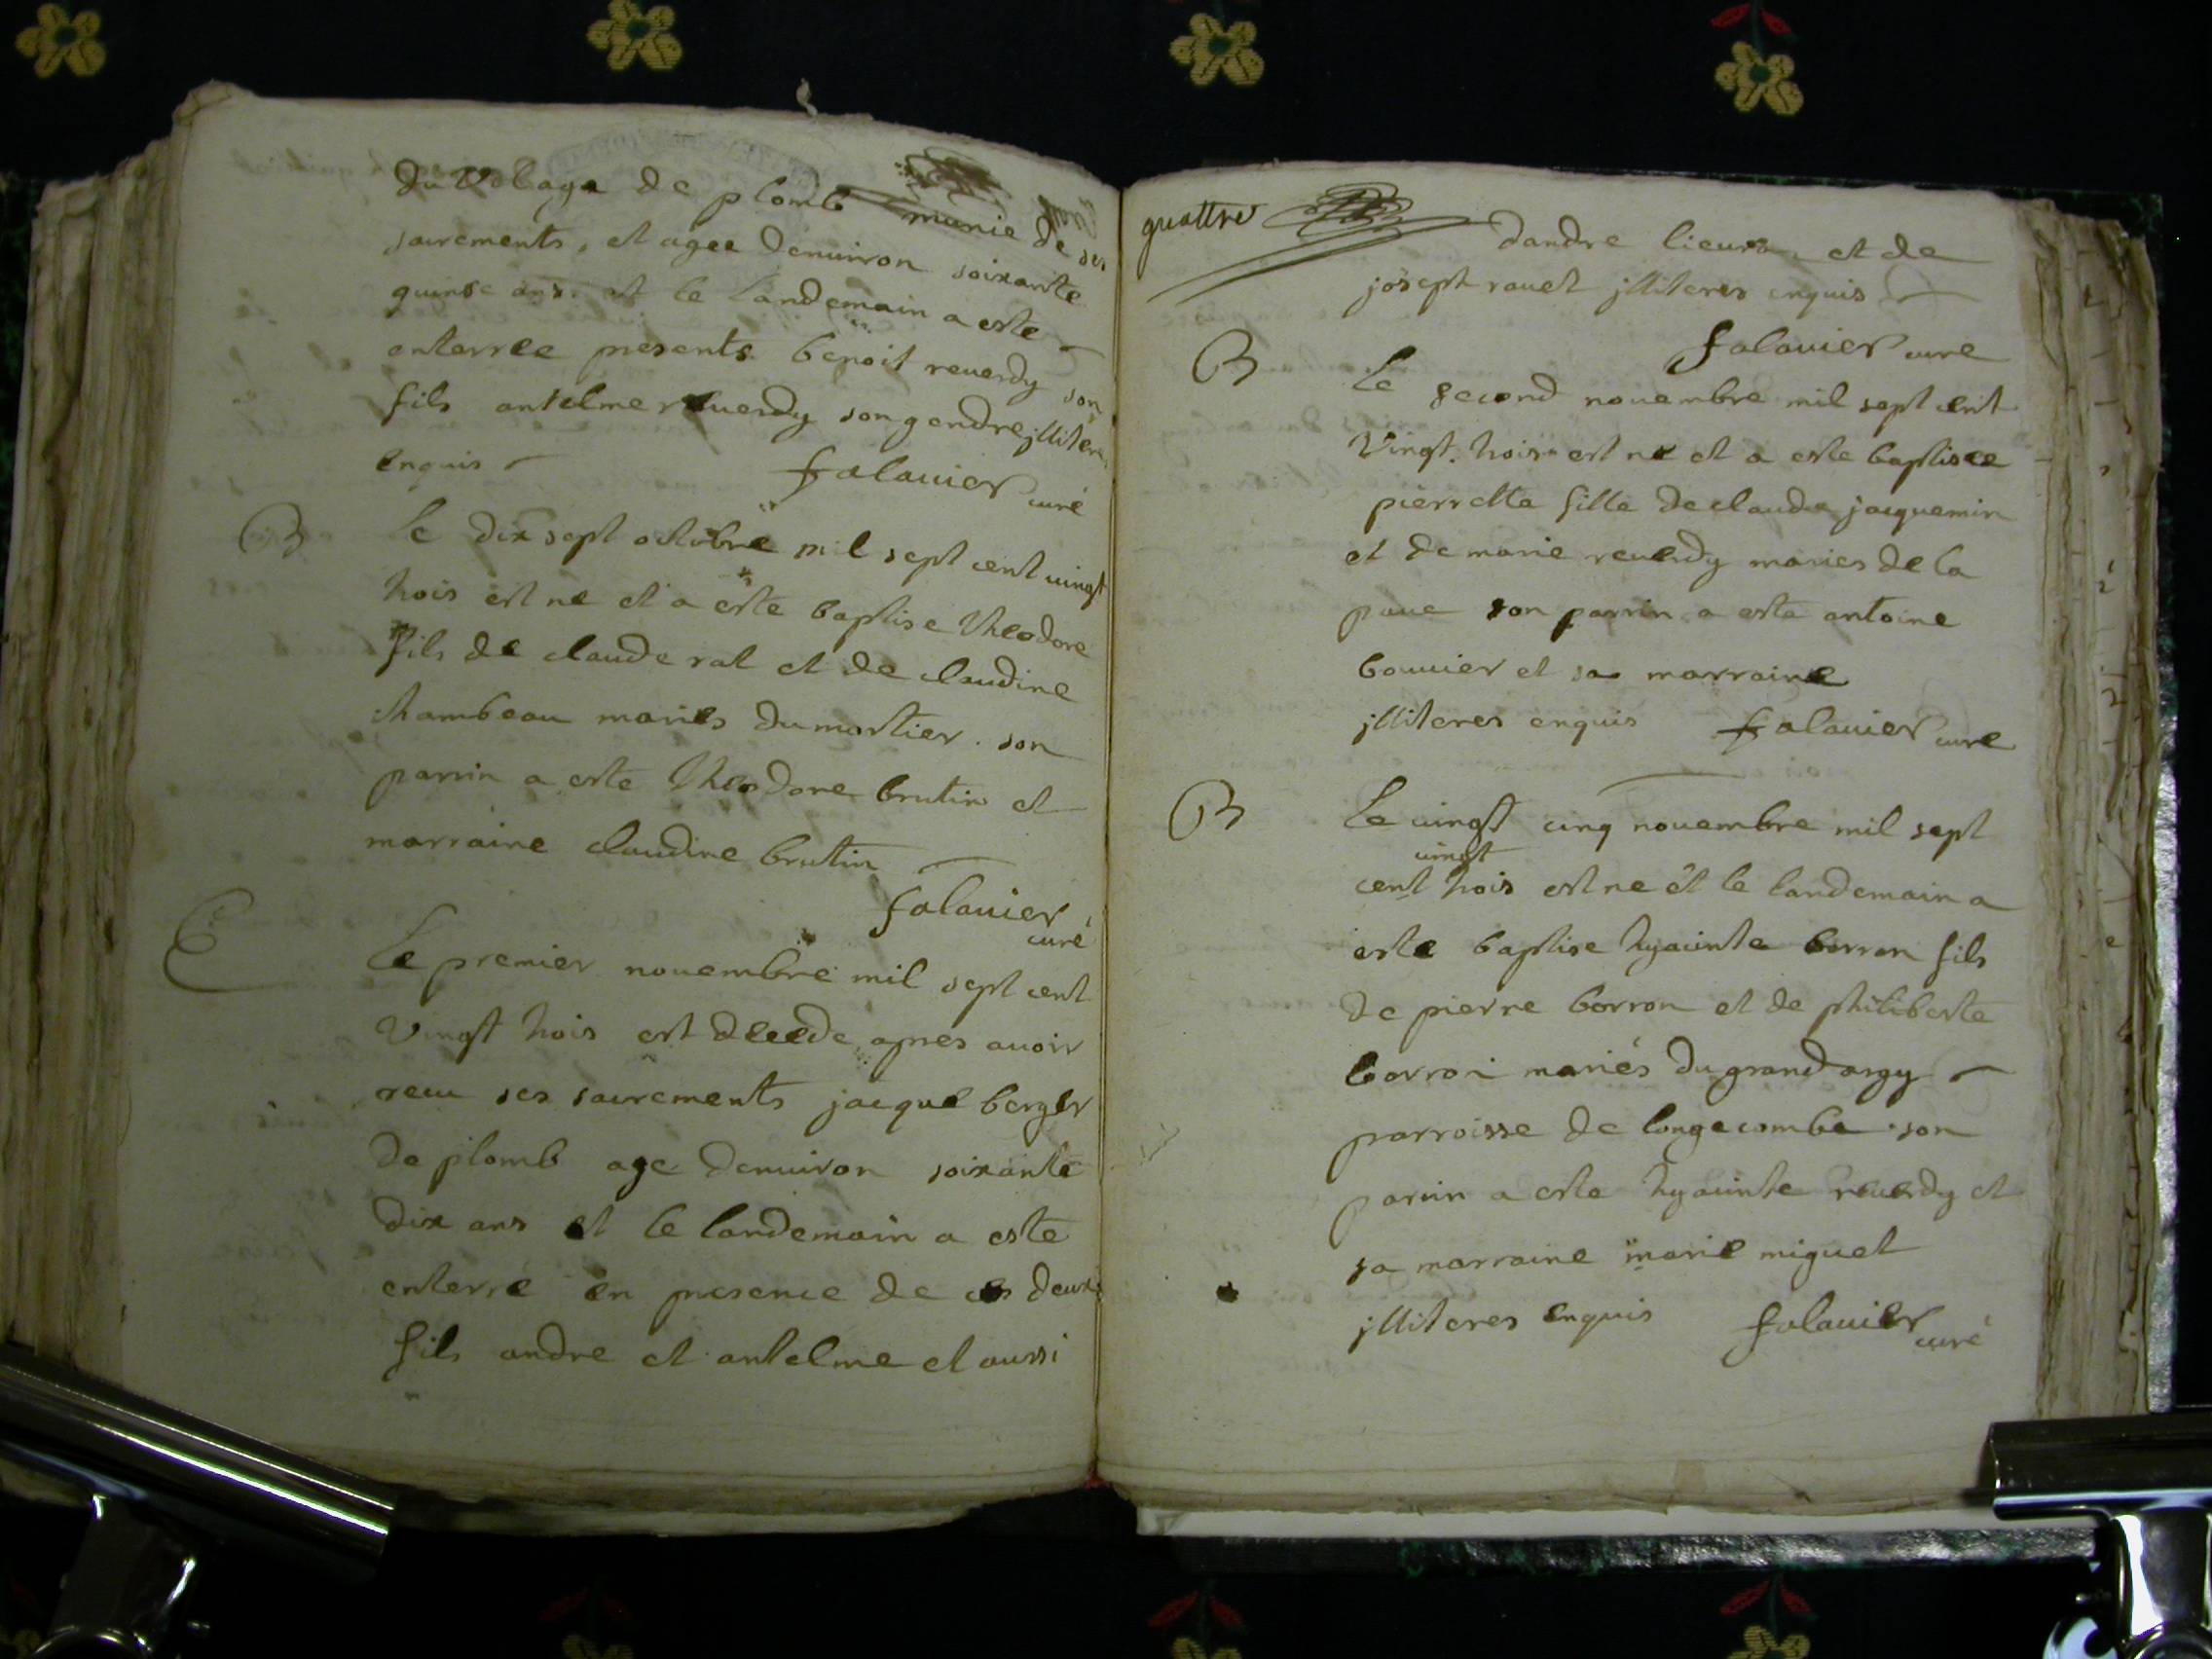 du Volage de plomb munie de ses
sacrements, et agee denuiron soixante
quinse ans. et le landemain a este
enterree presents benoit reuerdy son
fils antelme reuerdy son gendre jlliteres
enquis falauier curé
B Le dix sept octobre mil sept cent uingt
trois est ne et a este baptise theodore
fils de claude rat et de claudine
chambeau maries du mortier. son
parrin a este theodore brutin et
marraine claudine brutin
falauier
curé
E Le premier nouembre mil sept cent
Vingt trois est decede apres auoir
receu ses sacrements jacque berger
de plomb age denuiron soixante
dix ans et le landemain a este
enterré en presence de ces deux
fils andre et antelme et aussi
quattre
dandre lieura et de
josept rauet jlliteres enquis
falauier cure
B Le second nouembre mil sept cent
Vingt trois est ne et a este baptisee
pierrette fille de claude jacquemin
et de marie reuerdy maries de la
paue son parrin a este antoine
bouuier et sa marraine
jlliteres enquis falauier cure
B Le uingt cinq nouembre mil sept
uingt
cent trois est ne et le landemain a
este baptise hyacinte borron fils
de pierre borron et de philiberte
borron mariés du grand argy
parroisse de longecombe son
parrin a este hyacinte reuerdy et
sa marraine marie miguet
jlliteres enquis falauier curé